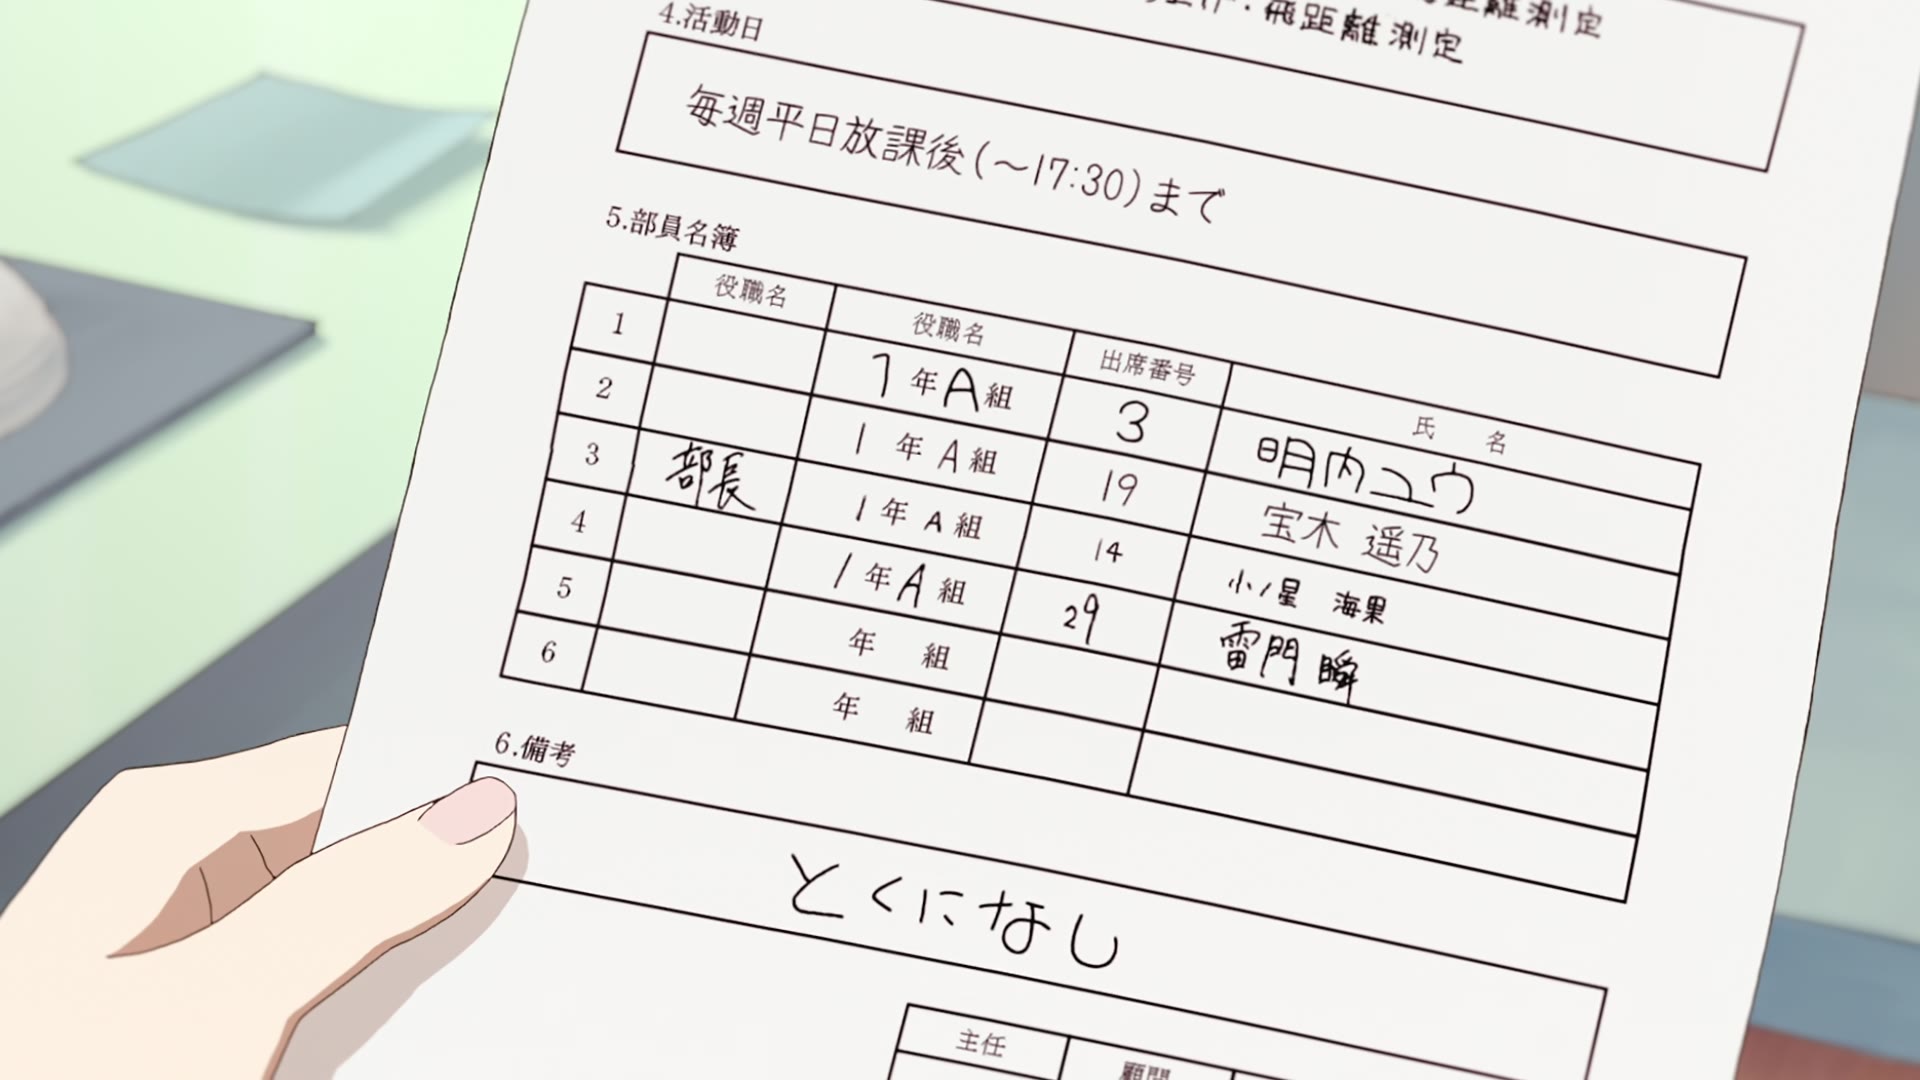 距離測定
・飛距離測定
4.活動日
毎週平日放課後(～17:30)まで
5.部員名簿
役職名 役職名 出席番号 氏 名
1 1年A組 3 明内ユウ
2 1年A組 19 宝木 遥乃
3 部長 1年A組 14 小ノ星 海果
4 1年A組 29 雷門 瞬
5 年 組
6 年 組
6.備考
とくになし
主任 顧問